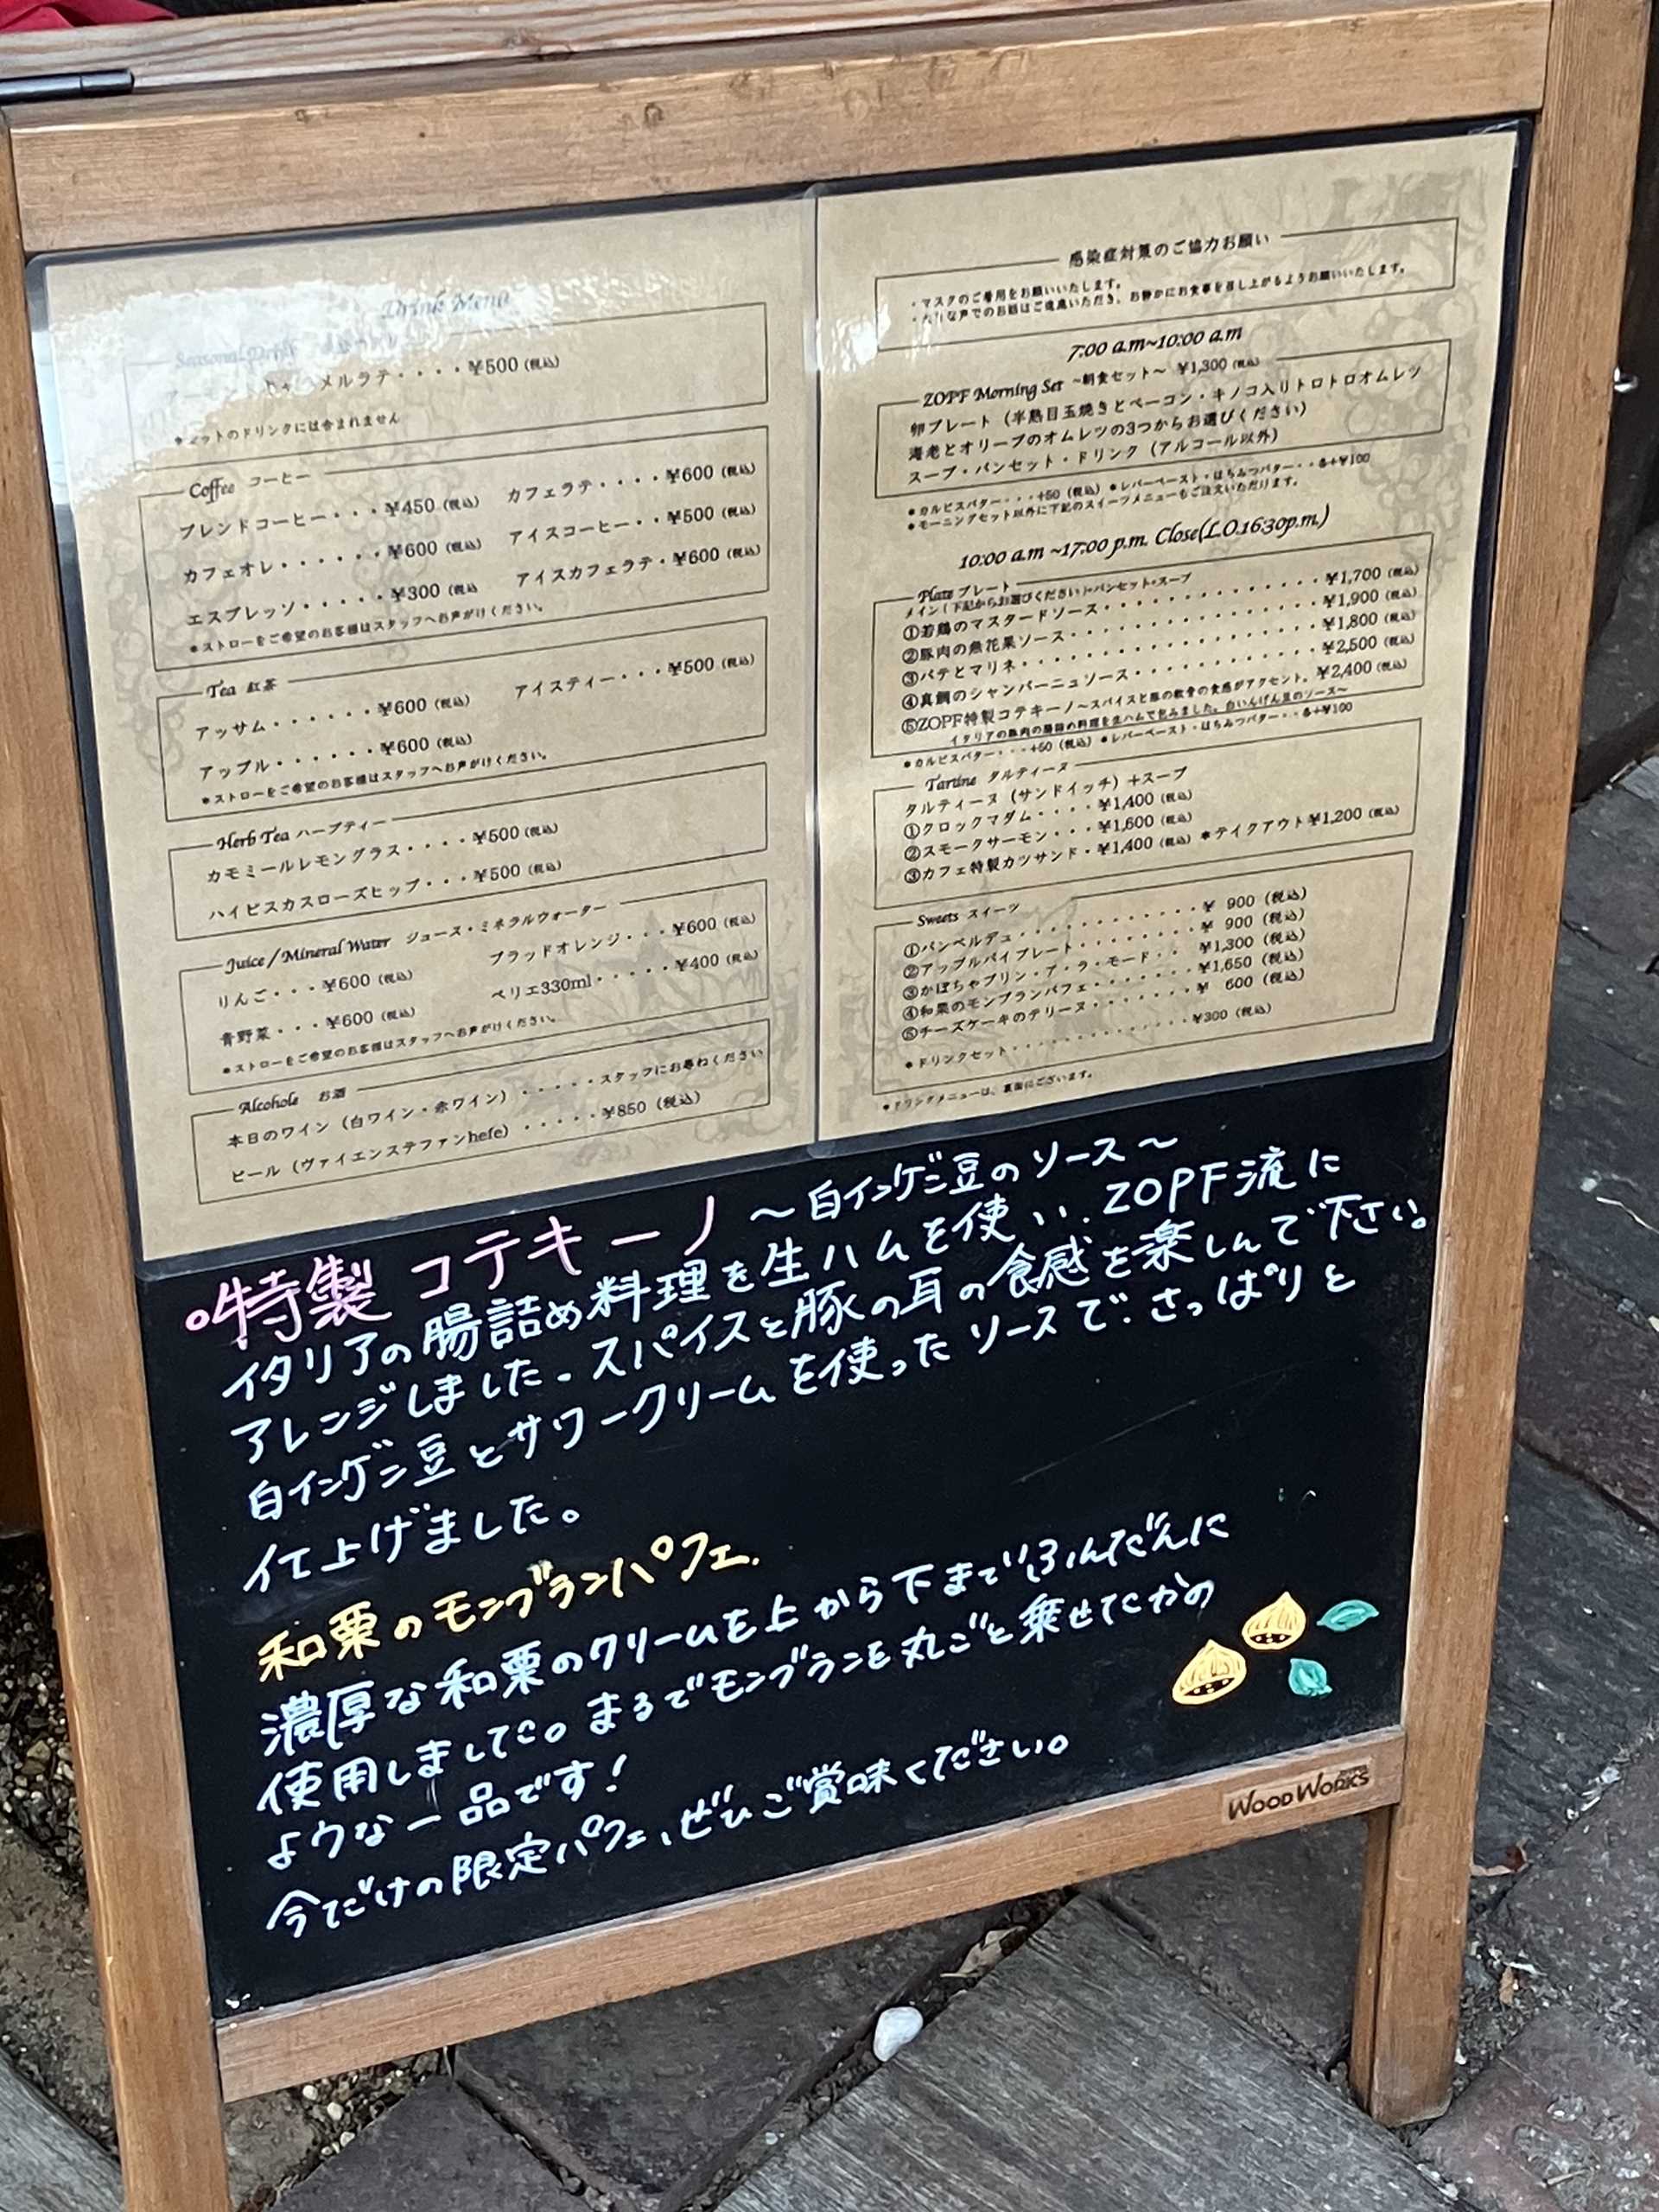 Drink Menu
Seasonal Drink
メルラテ・・・・¥500 (税込)
セットのドリンクには含まれません
Coffee コーヒー
ブレンドコーヒー・・・¥450 (税込) カフェラテ・・・・¥600 (税込)
カフェオレ・・・・・・¥600 (税込) アイスコーヒー・・¥500 (税込)
エスプレッソ・・・・・¥300 (税込 アイスカフェラテ・¥600 (税込)
●ストローをご希望のお客様はスタッフへお声がけください。
Tea 紅茶
アッサム・・・・・・¥600 (税込) アイスティー・・・¥500 (税込)
アップル・・・・・・¥600 (税込)
●ストローをご希望のお客様はスタッフへお声がけください。
Herb Tea ハーブティー
カモミールレモングラス・・・・¥500 (税込)
ハイビスカスローズヒップ・・・¥500 (税込)
Juice / Mineral Water ジュース・ミネラルウォーター
りんご・・・¥600 (税込) ブラッドオレンジ・・・¥600 (税込)
青野菜・・・¥600 (税込) ペリエ330ml・・・・・¥400 (税込)
●ストローをご希望のお客様はスタッフへお声がけください。
Alcohole お酒
本日のワイン (白ワイン・赤ワイン)・・・・・スタッフにお尋ねください
ビール (ヴァイエンステファンhefe)・・・・・¥850 (税込)
感染症対策のご協力お願い
・マスクのご着用をお願いいたします。
な声でのお話はご遠慮いただき、お静かにお食事を召し上がるようお願いいたします。
7:00 a.m~10:00 a.m
ZOPF Morning Set ~朝食セット~ ¥1,300 (税込)
卵プレート (半熟目玉焼きとベーコン・キノコ入りトロトロオムレツ
海老とオリーブのオムレツの3つからお選びください)
スープ・パンセット・ドリンク (アルコール以外)
●カルピスバター・・・+50 (税込) ●レバーペースト・はちみつバター・・各+¥100
●モーニングセット以外に下記のスイーツメニューもご注文いただけます。
10:00 a.m ~17:00 p.m. Close(L.O.16:30p.m.)
Plate プレート
メイン(下記からお選びください)+パンセット+スープ
①若鶏のマスタードソース・・・・・・・・・・・・・¥1,700 (税込)
②豚肉の無花果ソース・・・・・・・・・・・・・・・¥1,900 (税込)
③パテとマリネ・・・・・・・・・・・・・・・・・・¥1,800 (税込)
④真鯛のシャンパーニュソース・・・・・・・・・・・¥2,500 (税込)
⑤ZOPF特製コテキーノ~スパイスと豚の軟骨の食感がアクセント。¥2,400 (税込)
イタリアの豚肉の腸詰め料理を生ハムで包みました。白いんげん豆のソース~
●カルピスバター・・・+50 (税込) ●レバーペースト・はちみつバター・・各+¥100
Tartine タルティーヌ
タルティーヌ (サンドイッチ) +スープ
①クロックマダム・・・・¥1,400 (税込)
②スモークサーモン・・・¥1,600 (税込)
③カフェ特製カツサンド・¥1,400 (税込) ●テイクアウト¥1,200 (税込)
Sweets スイーツ
①パンペルデュ・・・・・・・・・・¥ 900 (税込)
②アップルパイプレート・・・・・・・・¥ 900 (税込)
③かぼちゃプリン・ア・ラ・モード・・¥1,300 (税込)
④和栗のモンブランパフェ・・・・・・・¥1,650 (税込)
⑤チーズケーキのテリーヌ・・・・・・・¥ 600 (税込)
●ドリンクセット・・・・・・・・・・・¥300 (税込)
●ドリンクメニューは、裏面にございます。
特製 コテキーノ ~白インゲン豆のソース~
イタリアの腸詰め料理を生ハムを使い、ZOPF流に
アレンジしました。スパイスと豚の耳の食感を楽しんで下さい。
白インゲン豆とサワークリームを使ったソースで、さっぱりと
仕上げました。
和栗のモンブランパフェ.
濃厚な和栗のクリームを上から下までふんだんに
使用しました。まるでモンブランを丸ごと乗せたかの
ような一品です!
今だけの限定パフェ、ぜひご賞味ください。
WOOD WORKS